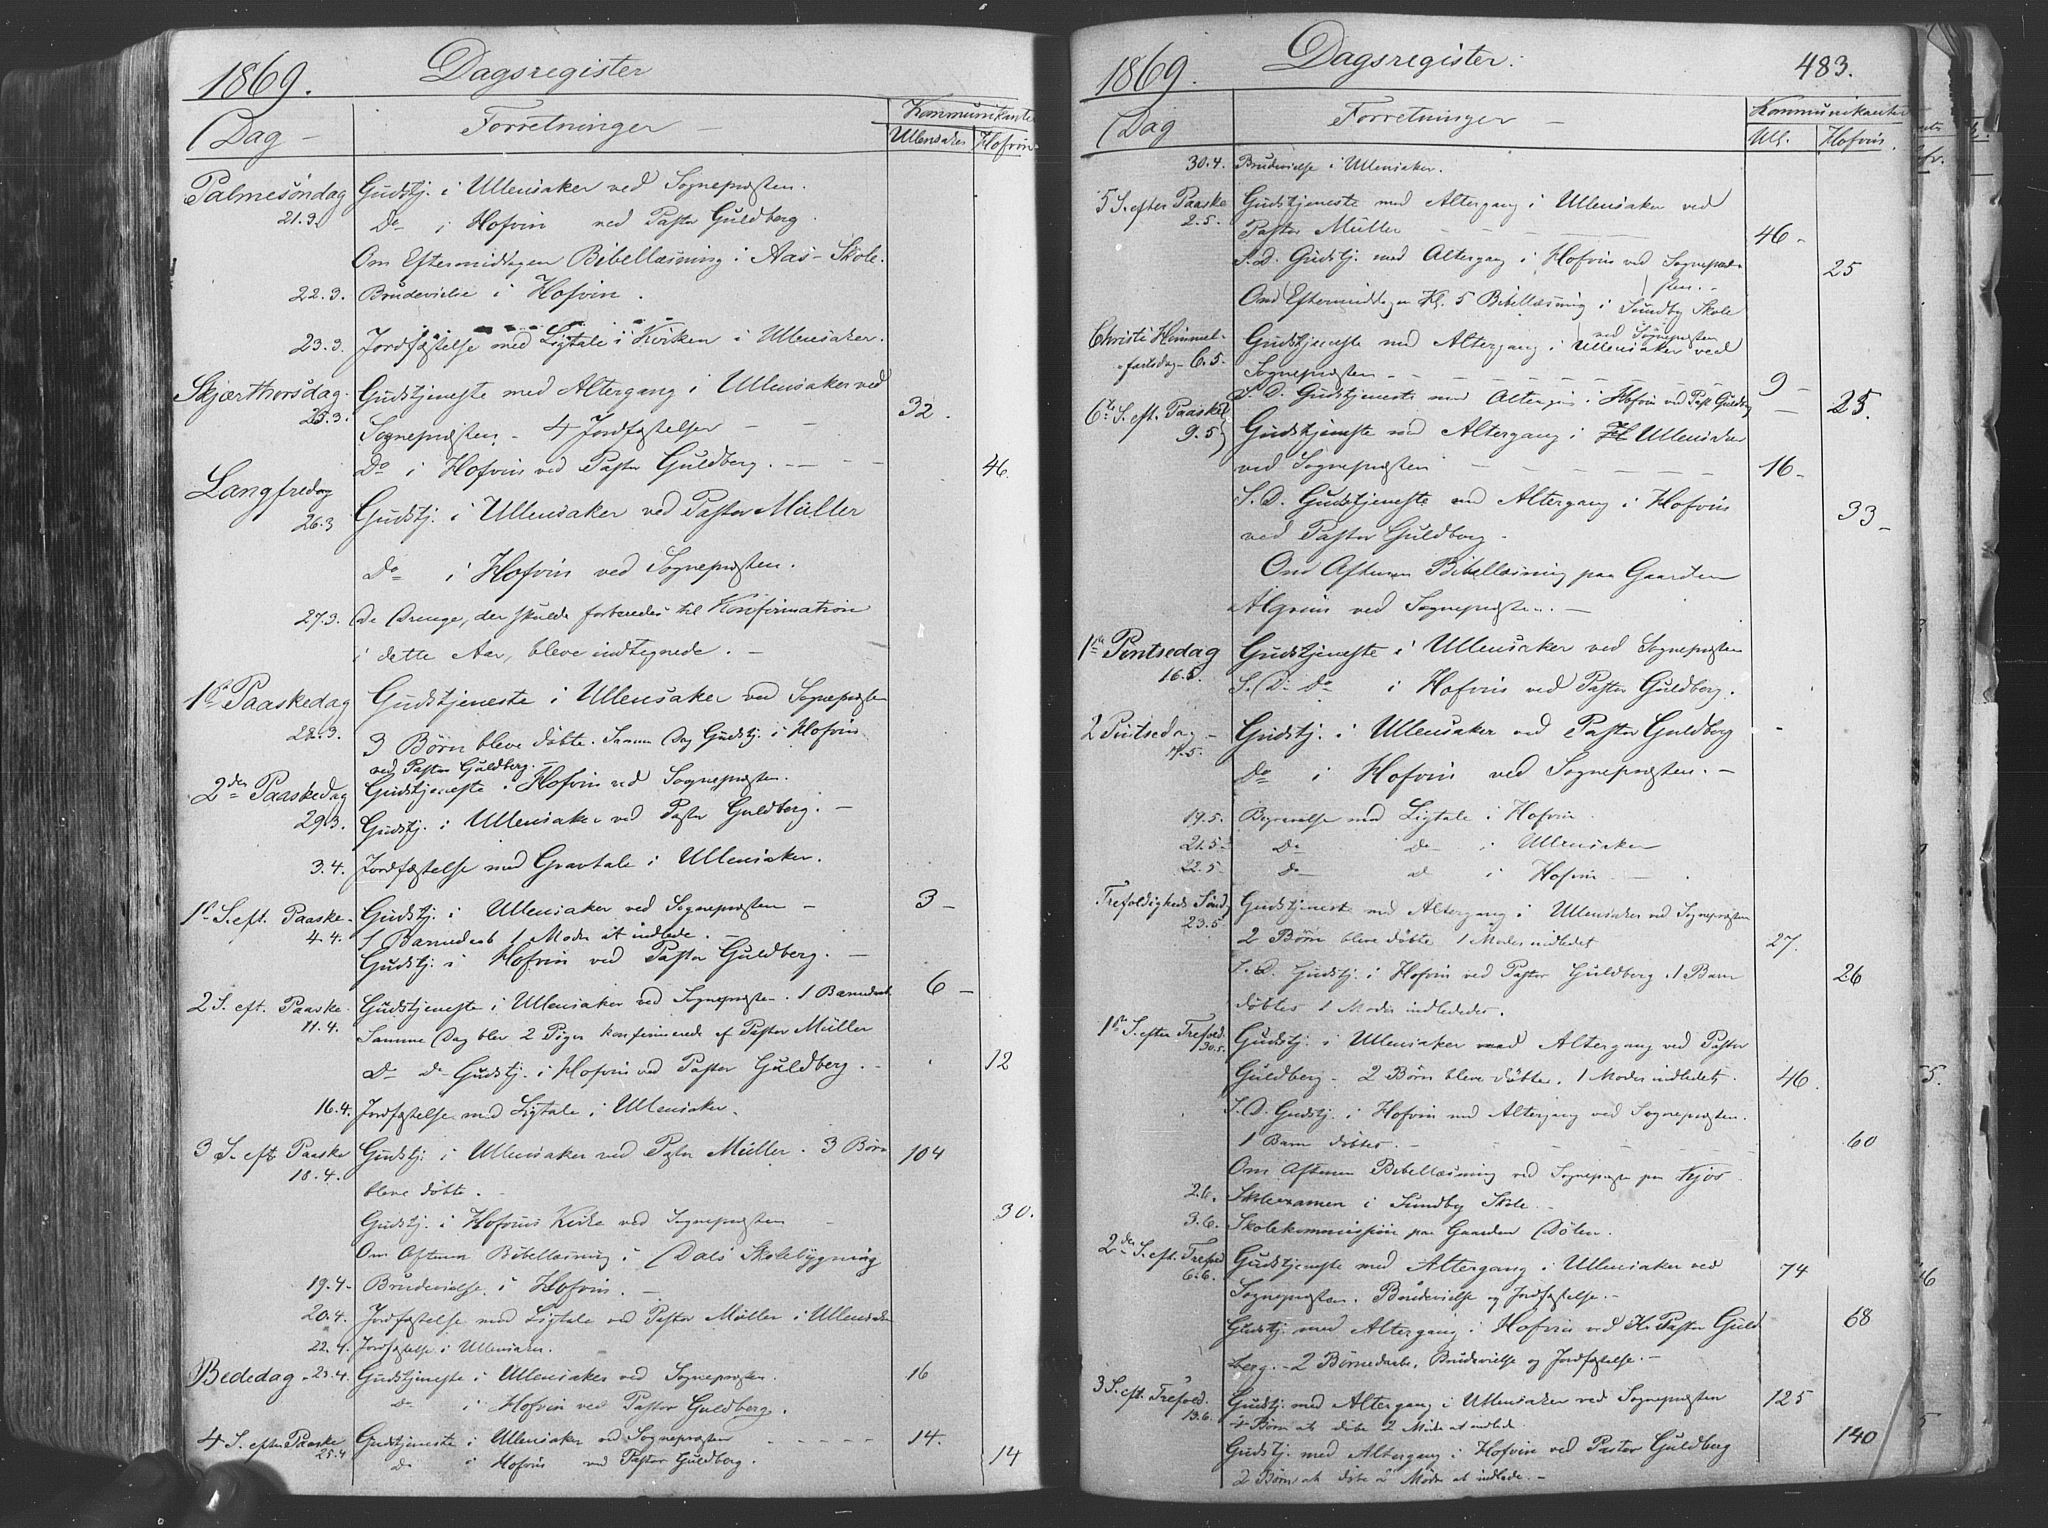 1869. Dagsregister
Dag — Forretninger — Kommunikanter
Ullensaker Hofvin
Palmesöndag Gudstj. i Ullensaker ved Sognepræsten.
21.3. Do i Hofvin ved Pastor Guldberg.
Om Eftermiddagen Bibellæsning i Aas-Skole.
22.3. Brudevielse i Hofvin.
23.3. Jordfæstelse med Ligtale i Kirken i Ullensaker.
Skjærthorsdag Gudstjeneste med Altergang i Ullensaker ved 32.
25.3. Sognepræsten – 4 Jordfæstelser – –
Do i Hofvin ved Pastor Guldberg. – – – 46
Langfredag
26.3 Gudstj. i Ullensaker ved Pastor Müller
Do i Hofvin ved Sognepræsten.
27.3. De Drenge, der skulde forberedes til Konfirmation
i dette Aar, bleve indtegnede. –
1ste Paaskedag Gudstjeneste i Ullensaker ved Sognepræsten
28.3. 3 Börn bleve døbte. Samme Dag Gudstj. i Hofvin
ved Pastor Guldberg. –
2den Paaskedag Gudstjeneste i Hofvin ved Sognepræsten.
29.3. Gudstj. i Ullensaker ved Pastor Guldberg. –
3.4. Jordfæstelse med Gravtale i Ullensaker.
1ste S. eft. Paaske. Gudstj. i Ullensaker ved Sognepræsten – 3 –
4.4. 1 Barnedaab 1 Moder at indlede. –
Gudstj. i Hofvin ved Pastor Guldberg. –
2 S. eft. Paaske. Gudstjeneste i Ullensaker ved Sognepræsten. 1 Barnedaab 6 –
11.4. Samme Dag blev 2 Piger konfirmerede af Pastor Müller
Do Do Gudstj. i Hofvin ved Pastor Guldberg. – 12
16.4. Jordfæstelse med Ligtale i Ullensaker.
3 S. eft. Paaske Gudstj. i Ullensaker ved Pastor Müller. 3 Börn 104
18.4. bleve døbte. –
Gudstj. i Hofvins Kirke ved Sognepræsten – 30.
Om Aftenen Bibellæsning i Dals Skolebygning
19.4. Brudevielse i Hofvin. –
20.4. Jordfæstelse med Ligtale ved Pastor Müller i Ullensaker
22.4. Jordfæstelse i Ullensaker.
Bededag 23.4. Gudstjeneste i Ullensaker ved Sognepræsten. 16
Do i Hofvin ved Pastor Guldberg.
4 S. efter Paaske Gudstjeneste i Ullensaker ved Sognepræsten – – – – 14.
25.4 Do i Hofvin ved Pastor Guldberg. 14
1869. Dagsregister. 483.
Dag Forretninger – Kommunikanter
Ull. Hofvin.
30.4. Brudevielse i Ullensaker.
5 S. efter Paaske Gudstjeneste med Altergang i Ullensaker ved
2.5. Pastor Müller – – – – 46 –
S. D. Gudstj. med Altergang i Hofvin ved Sognepræ- 25
sten. –
Om Eftermiddagen Kl. 5 Bibellæsning i Sundby Skole
ved Sognepræsten
Christi Himmel- Gudstjeneste med Altergang i Ullensaker ved
fartsdag – 6.5. Sognepræsten – – – – – – 9 –
S. D. Gudstjeneste med Altergang i Hofvin ved Past. Guldberg – 25.
6te S. eft. Paaske Gudstjeneste med Altergang i Ullensaker
9.5 ved Sognepræsten – – – – – 16 –
S. D. Gudstjeneste med Altergang i Hofvin 33 –
ved Pastor Guldberg –
Om Aftenen Bibellæsning paa Gaarden
Algrim ved Sognepræsten. –
1ste Pintsedag Gudstjeneste i Ullensaker ved Sognepræsten
16.5. S. D. Do i Hofvin ved Pastor Guldberg.
2 Pintsedag – Gudstj. i Ullensaker ved Pastor Guldberg –
17.5. Do i Hofvin ved Sognepræsten. –
19.5. Begravelse med Ligtale i Hofvin.
21.5. Do Do i Ullensaker
22.5 Do D i Hofvin –
Trefoldigheds Sönd. Gudstjeneste med Altergang i Ullensaker ved Sognepræsten
23.5. 2 Börn bleve døbte 1 Moder indledet 27.
S. D. Gudstj. i Hofvin ved Pastor Guldberg. 1 Barn 26
døbtes 1 Moder indlededes.
1ste S. efter Trefold. Gudstj. i Ullensaker med Altergang ved Pastor
30.5. Guldberg – 2 Börn bleve døbte. 1 Moder indledet. 46.
S. D. Gudstj. i Hofvin med Altergang ved Sognepræsten.
1 Barn døbtes. – 60
Om Aftenen Bibellæsning ved Sognepræsten paa Kjos.
2.6. Skoleexamen i Sundby Skole. –
3.6. Skolekommission paa Gaarden Dölen.
2den S. eft. Trefold Gudstjeneste med Altergang i Ullensaker ved 74
6.6. Sognepræsten. Brudevielse og Jordfæstelse. –
Gudstj. med Altergang i Hofvin ved Pastor Guld 68
berg. – 2 Börnedaabe, Brudevielse og Jordfæstelse. –
3 S. eft. Trefold. Gudstj. med Altergang i Ullensaker ved Sognepræsten 125
13.6. 4 Børn at døbe 2 Mødre at indlede.
Gudstj. med Altergang i Hofvin ved Pastor Guldberg 140
2 Børn at døbe 2 Mødre at indlede. –